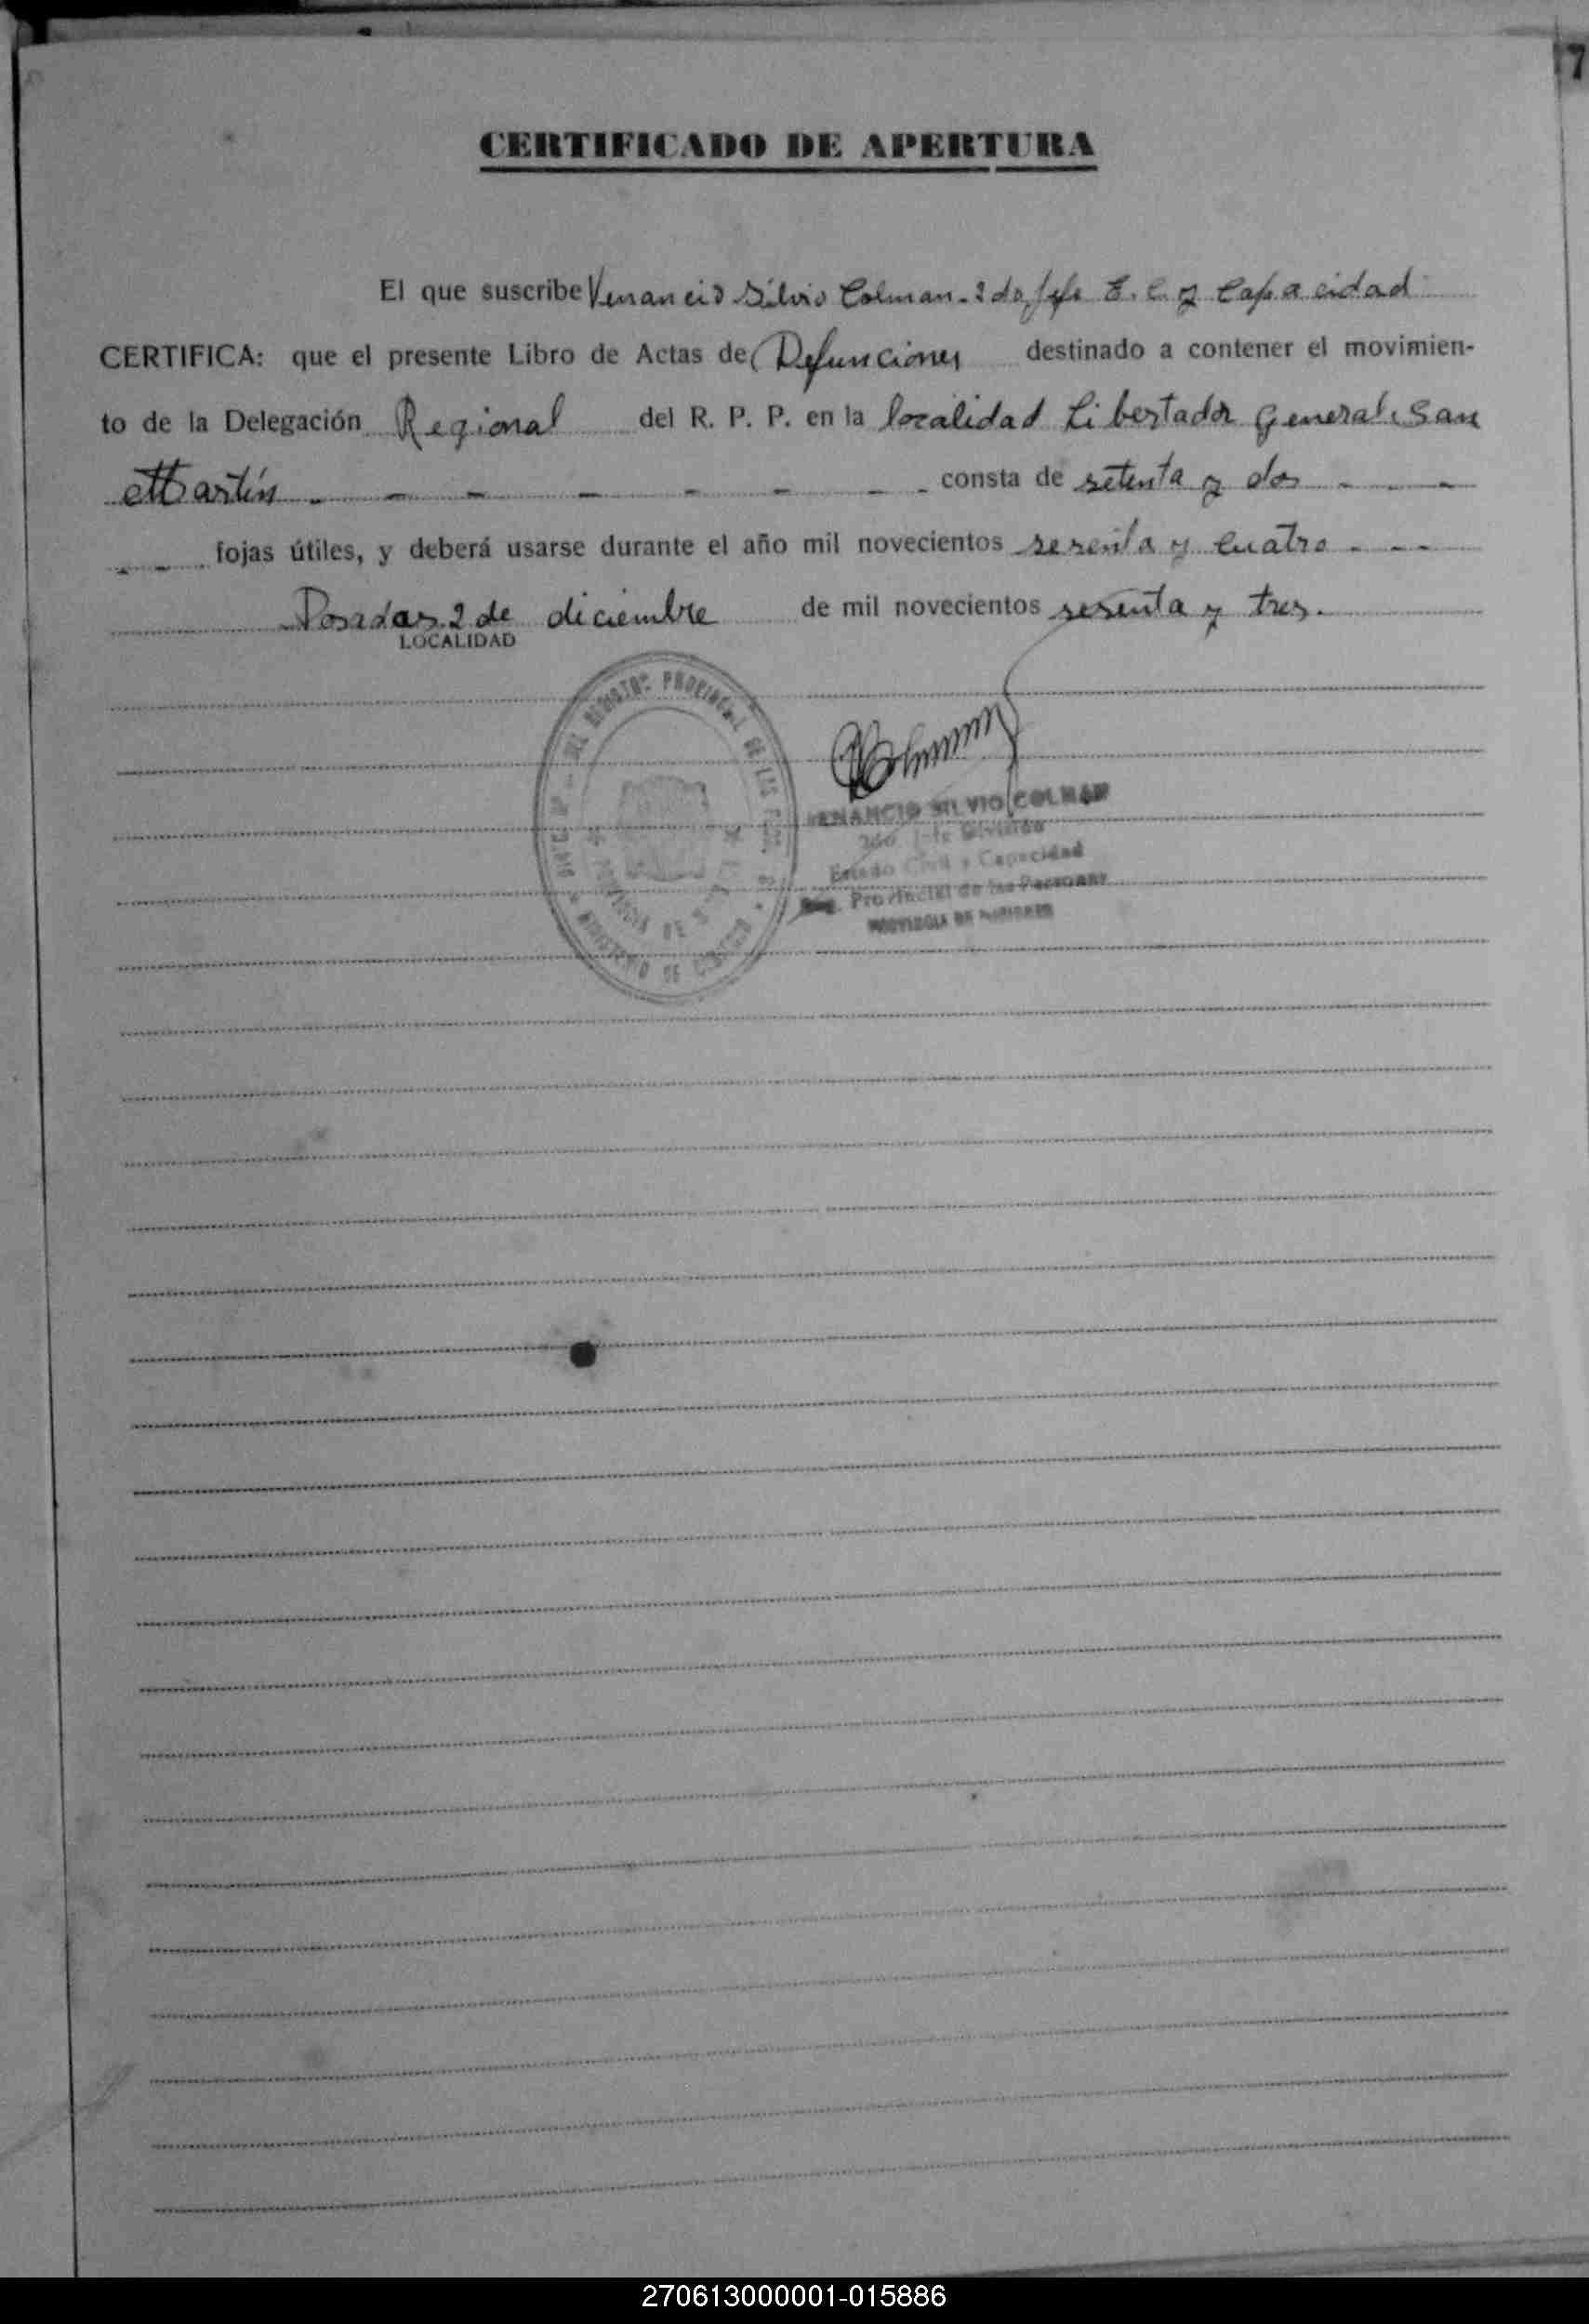 7
CERTIFICADO DE APERTURA
El que suscribe Venancio Silvio Colman - 2do Jefe E. C. y Capacidad
CERTIFICA: que el presente Libro de Actas de Defunciones destinado a contener el movimien-
to de la Delegación Regional del R. P. P. en la localidad Libertador General San
Martín - - - - - - - - consta de setenta y dos - - -
- - fojas útiles, y deberá usarse durante el año mil novecientos sesenta y cuatro - - -
Posadas 2 de diciembre de mil novecientos sesenta y tres.
LOCALIDAD
REGISTRO PROVINCIAL DE LAS
MINISTERIO DE
VENANCIO SILVIO COLMAN
2do Jefe División
Estado Civil y Capacidad
Reg. Provincial de las Personas
PROVINCIA DE MISIONES
270613000001-015886